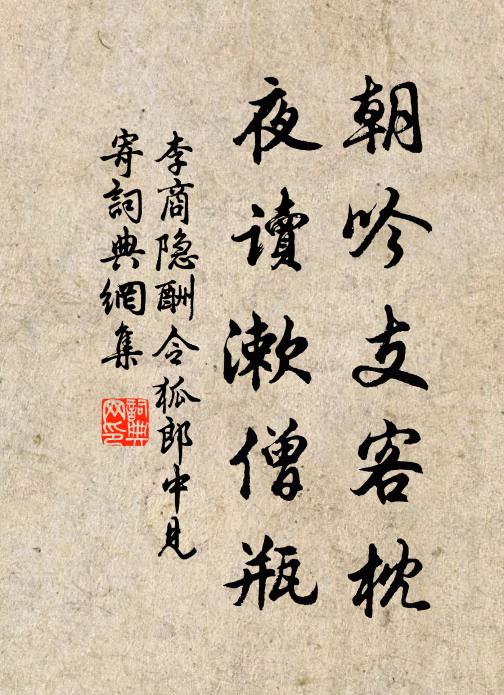 朝吟支客枕
夜讀漱僧瓶
李商隐酬令狐郎中見
寄詞典網集
詞典网印